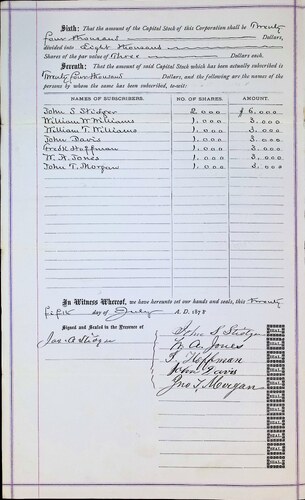 Sixth: That the amount of the Capital Stock of this Corporation shall be Twenty
four thousand Dollars,
divided into Eight thousand
Shares of the par value of Three Dollars each.
Seventh: That the amount of said Capital Stock which has been actually subscribed is
Twenty four thousand Dollars, and the following are the names of the
persons by whom the same has been subscribed, to-wit:
NAMES OF SUBSCRIBERS. NO. OF SHARES. AMOUNT.
John S Stidger 2,000 $ 6,000
William W Williams 1,000 3,000
William T. Williams 1,000 3,000
John Davis 1,000 3,000
Fredk Hoffman 1,000 3,000
W. A. Jones 1,000 3,000
John T. Morgan 1,000 3,000
In Witness Whereof, we have hereunto set our hands and seals, this Twenty
fifth day of July A. D. 1878
Signed and Sealed in the Presence of
Jas. A Stidger
John S Stidger
W. A. Jones
F Hoffman
John Davis
Jno T, Morgan
SEAL
SEAL
SEAL
SEAL
SEAL
SEAL
SEAL
SEAL
SEAL
SEAL
SEAL